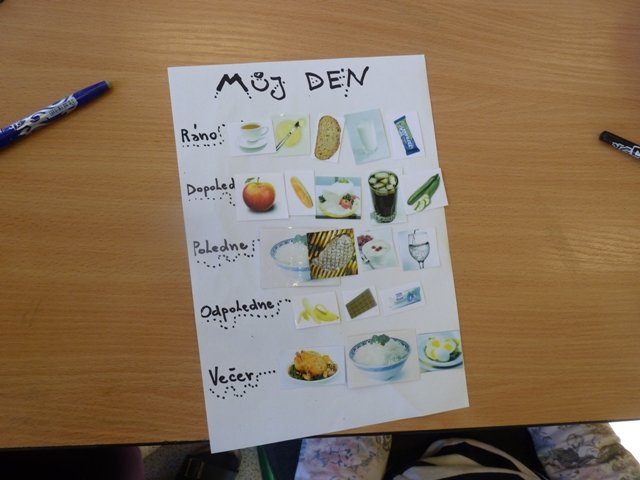 MŮJ DEN
Ráno
Dopoled
Poledne
Odpoledne
Večer